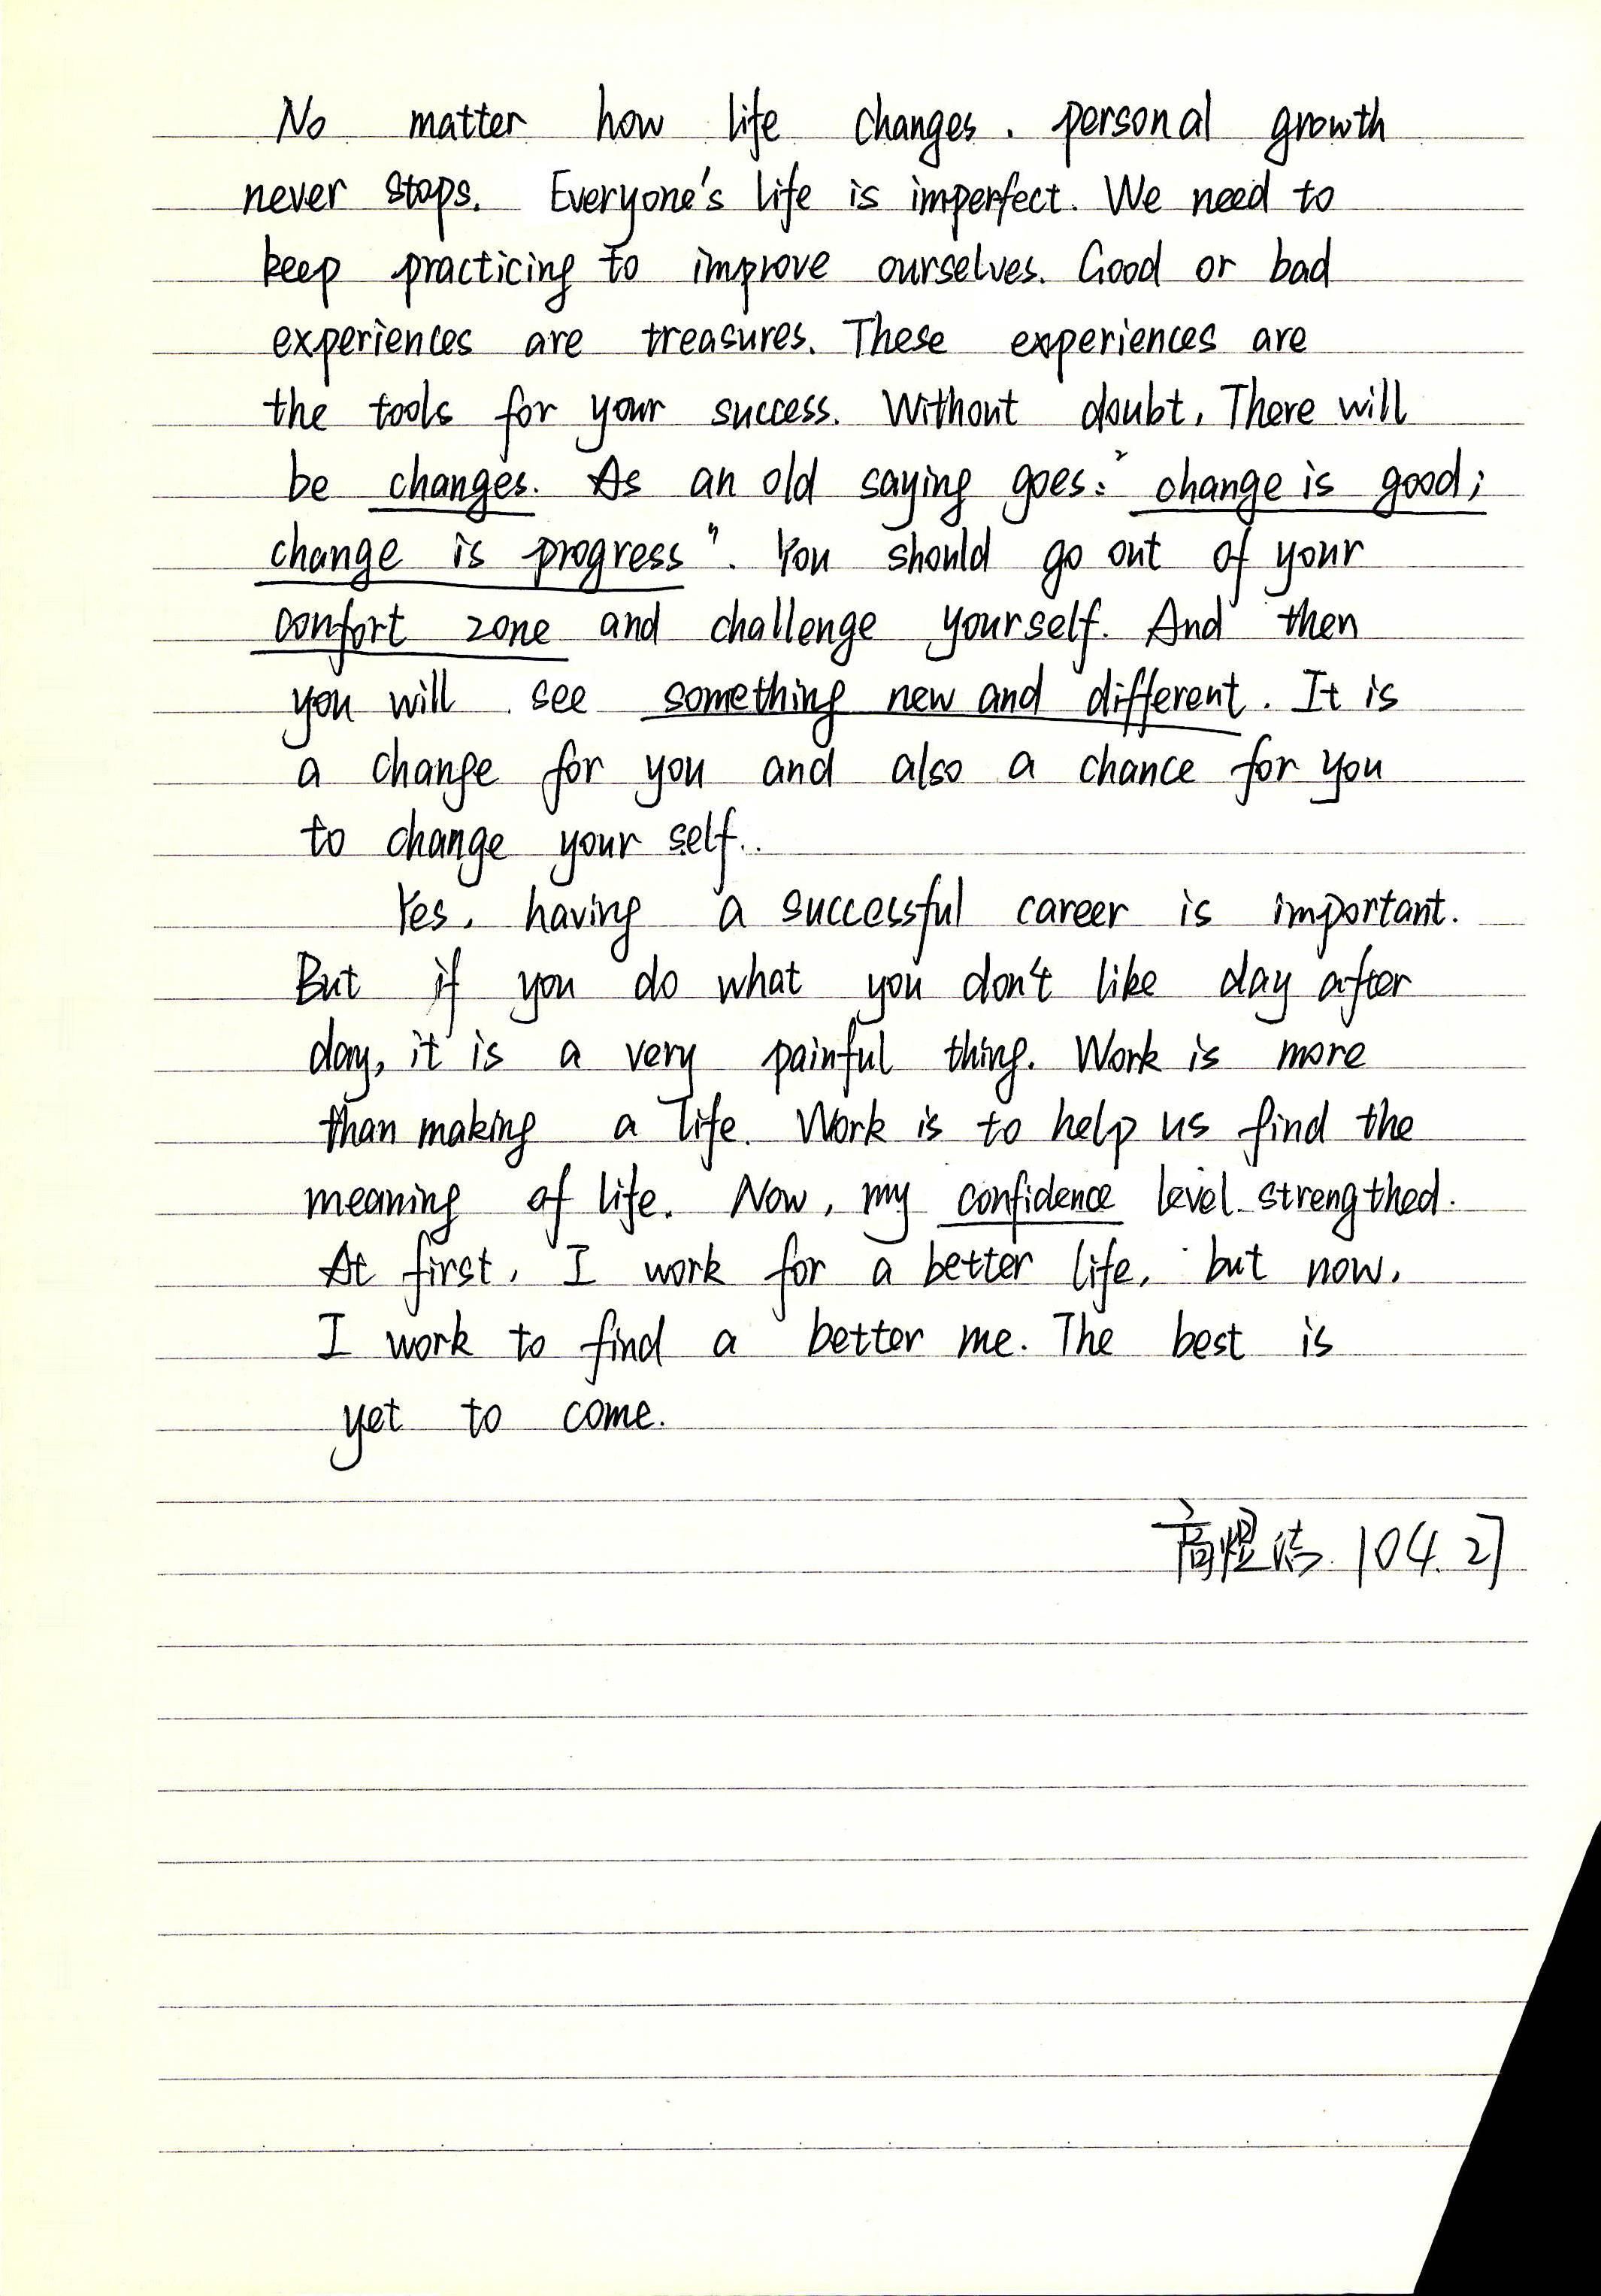 No matter how life changes, personal growth
never stops. Everyone's life is imperfect. We need to
keep practicing to improve ourselves. Good or bad
experiences are treasures. These experiences are
the tools for your success. Without doubt, There will
be changes. As an old saying goes: "change is good;
change is progress". You should go out of your
confort zone and challenge yourself. And then
you will see something new and different. It is
a change for you and also a chance for you
to change your self..
Yes, having a successful career is important.
But if you do what you don't like day after
day, it is a very painful thing. Work is more
than making a life. Work is to help us find the
meaning of life. Now, my confidence level strengthed.
At first, I work for a better life, but now,
I work to find a better me. The best is
yet to come.
104.27